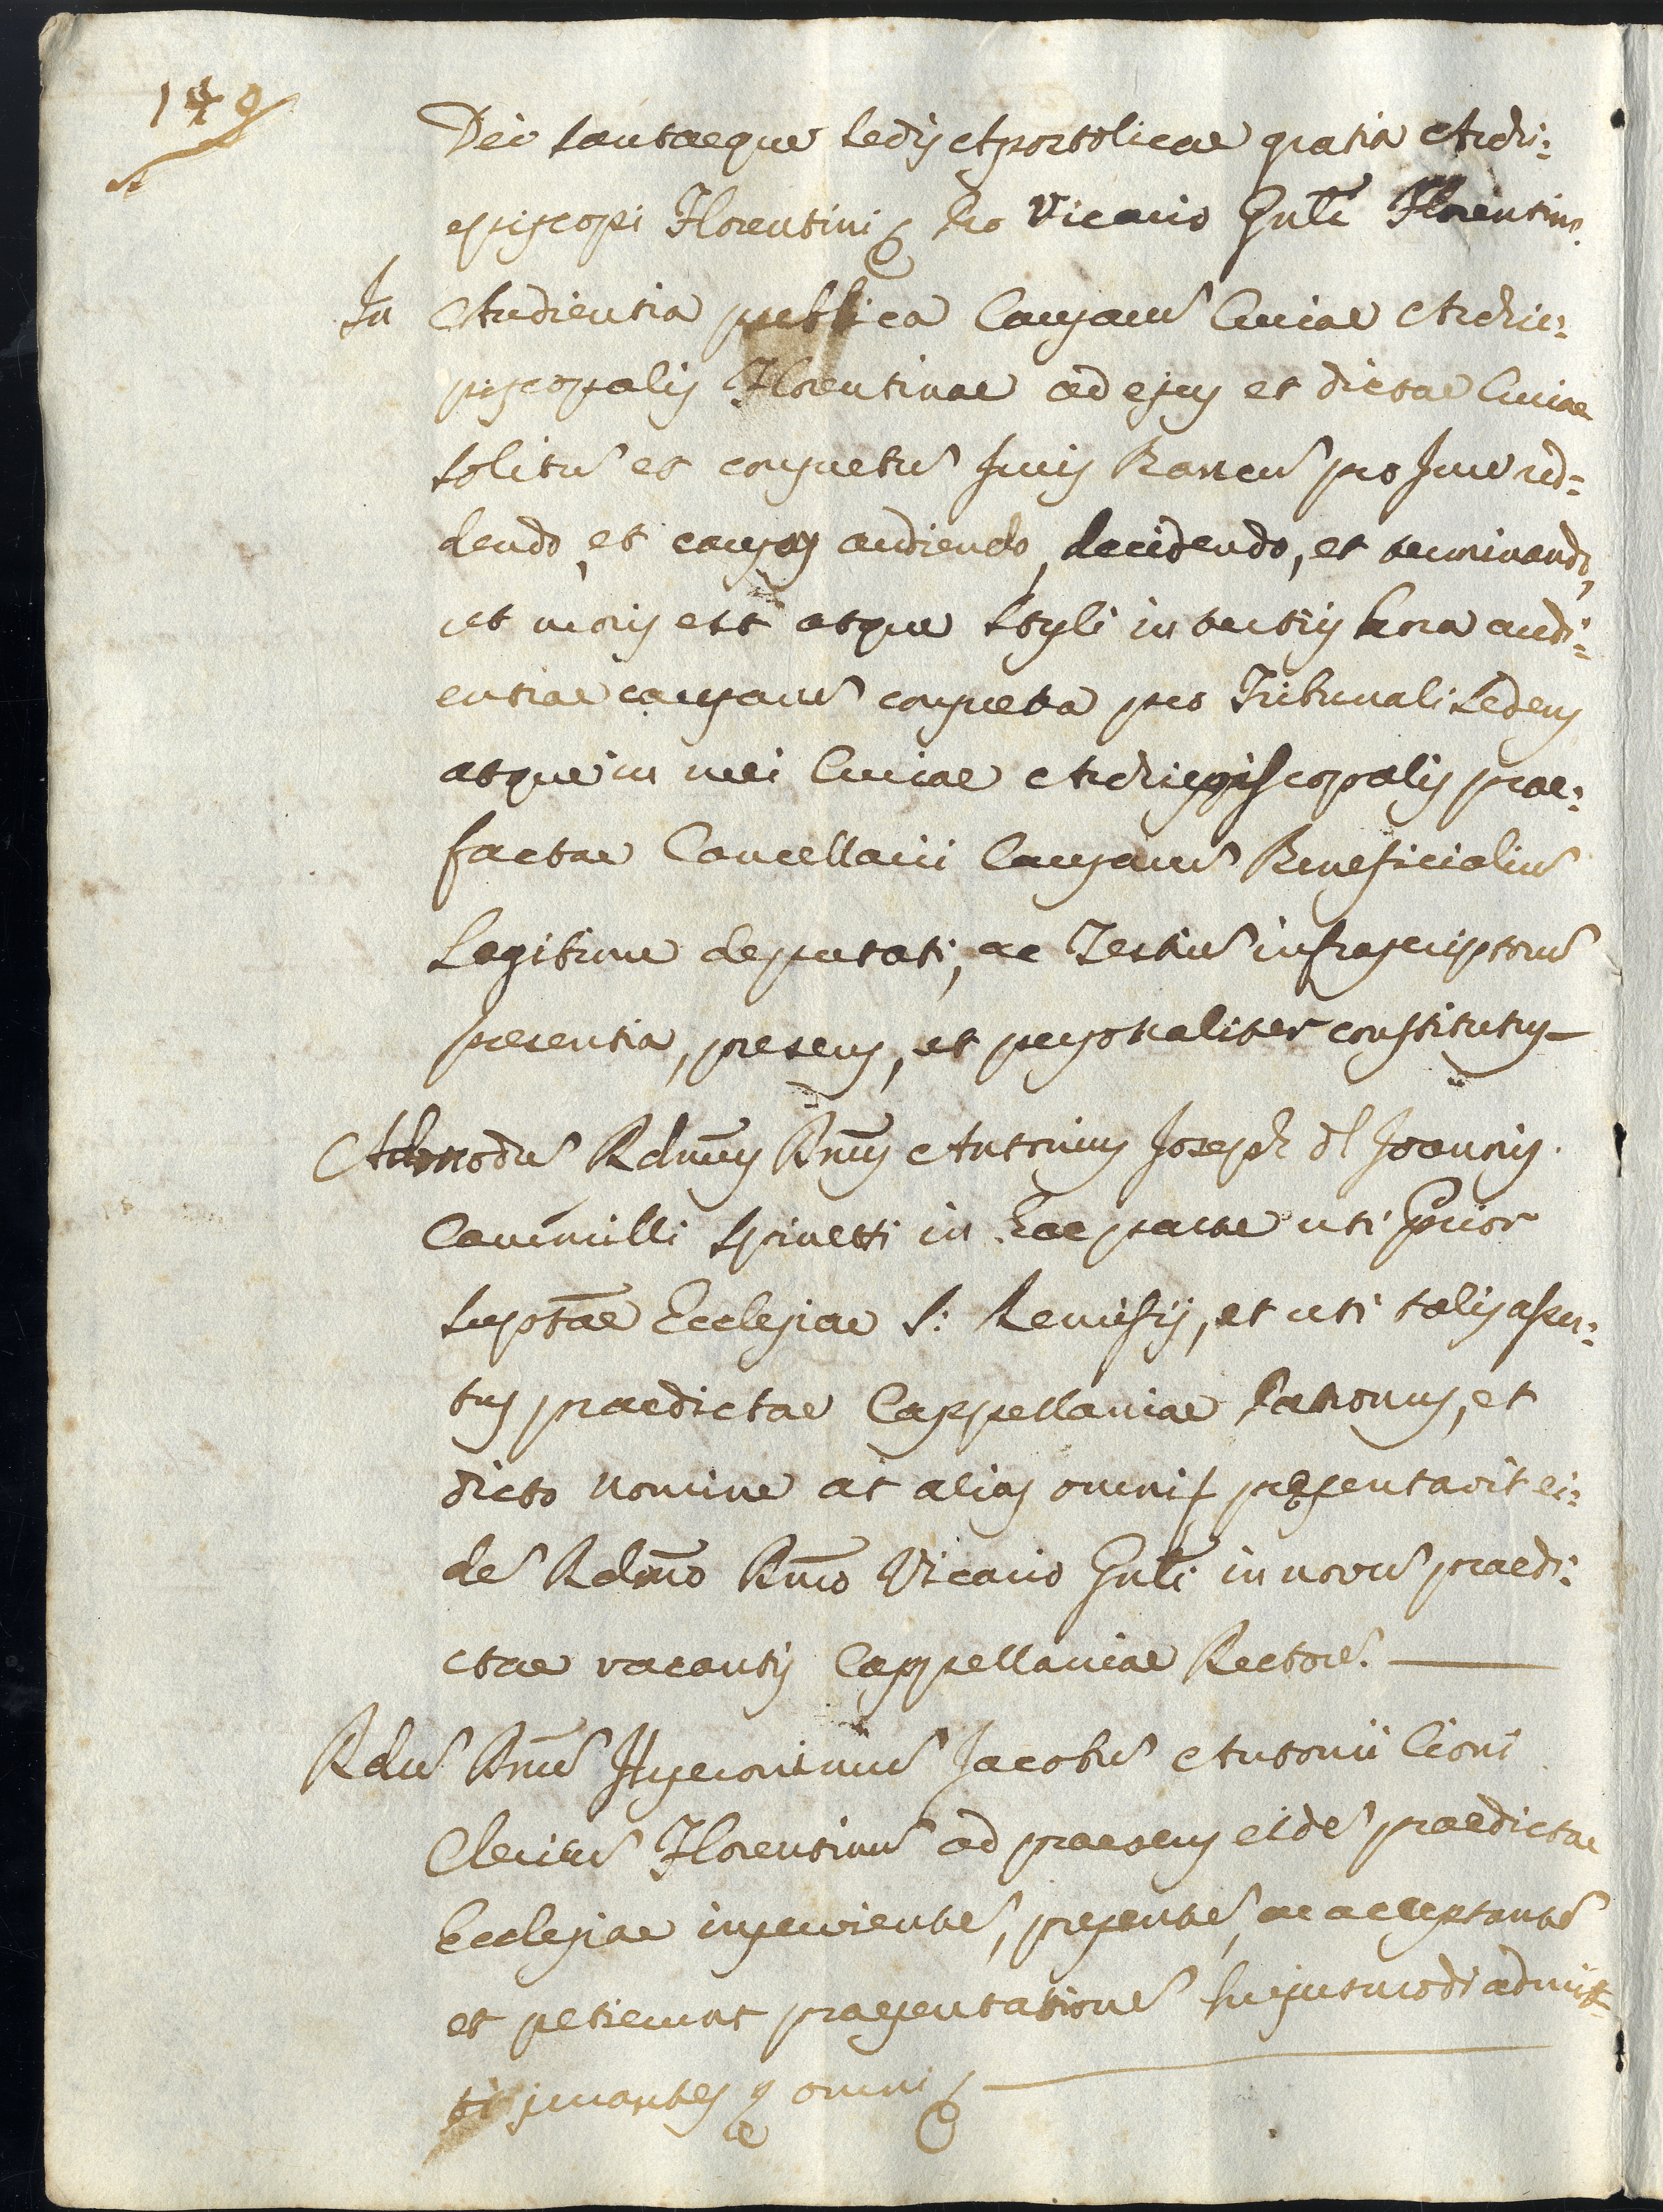 149
Dei Sanctaeque Sedis Apostolicae gratia Archi:
episcopi Florentini &c Pro Vicario Gnli Florentino
In Audientia publica Causarũ Curiae Archie:
piscopalis Florentinae ad ejus et dictae Curiae
solitũ et consuetũ Juris Bancũ pro Jure red=
dendo, et causas audiendo, decidendo, et terminando,
ut moris est atque Styli in tertiis hora audi=
entiae causarũ consueta pro Tribunali Sedens
atque in mei Curiae Archiepiscopalis prae:
factae Cancellarii Causarũ Beneficialiũ
Legitime deputati, ac Testiũ infrascriptorũ
presentia, presens, et personaliter constitutus
Admodũ Rdus Dnus Antonius Joseph ql Joannis
Cammilli Spinetti in hac parte uti Prior
Suptae Ecclesiae S: Remisij, et uti talis asser:
tus praedictae Cappellaniae Patronus, et
dicto nomine at alias omni &c presentavit ei:
dẽ Rdmo Dno Vicario Gnli in novũ praedi:
ctae vacantis Cappellaniae Rectorẽ
Rdũ Dnũ Hyeronimũ Jacobũ Antonii Cioni
Clericũ Florentinũ ad praesens eidẽ praedictae
Ecclesiae inservientẽ, presentẽ, ac acceptantẽ
et petierunt praesentationẽ hujusmodi admit=
ti jurantes &c omni &c